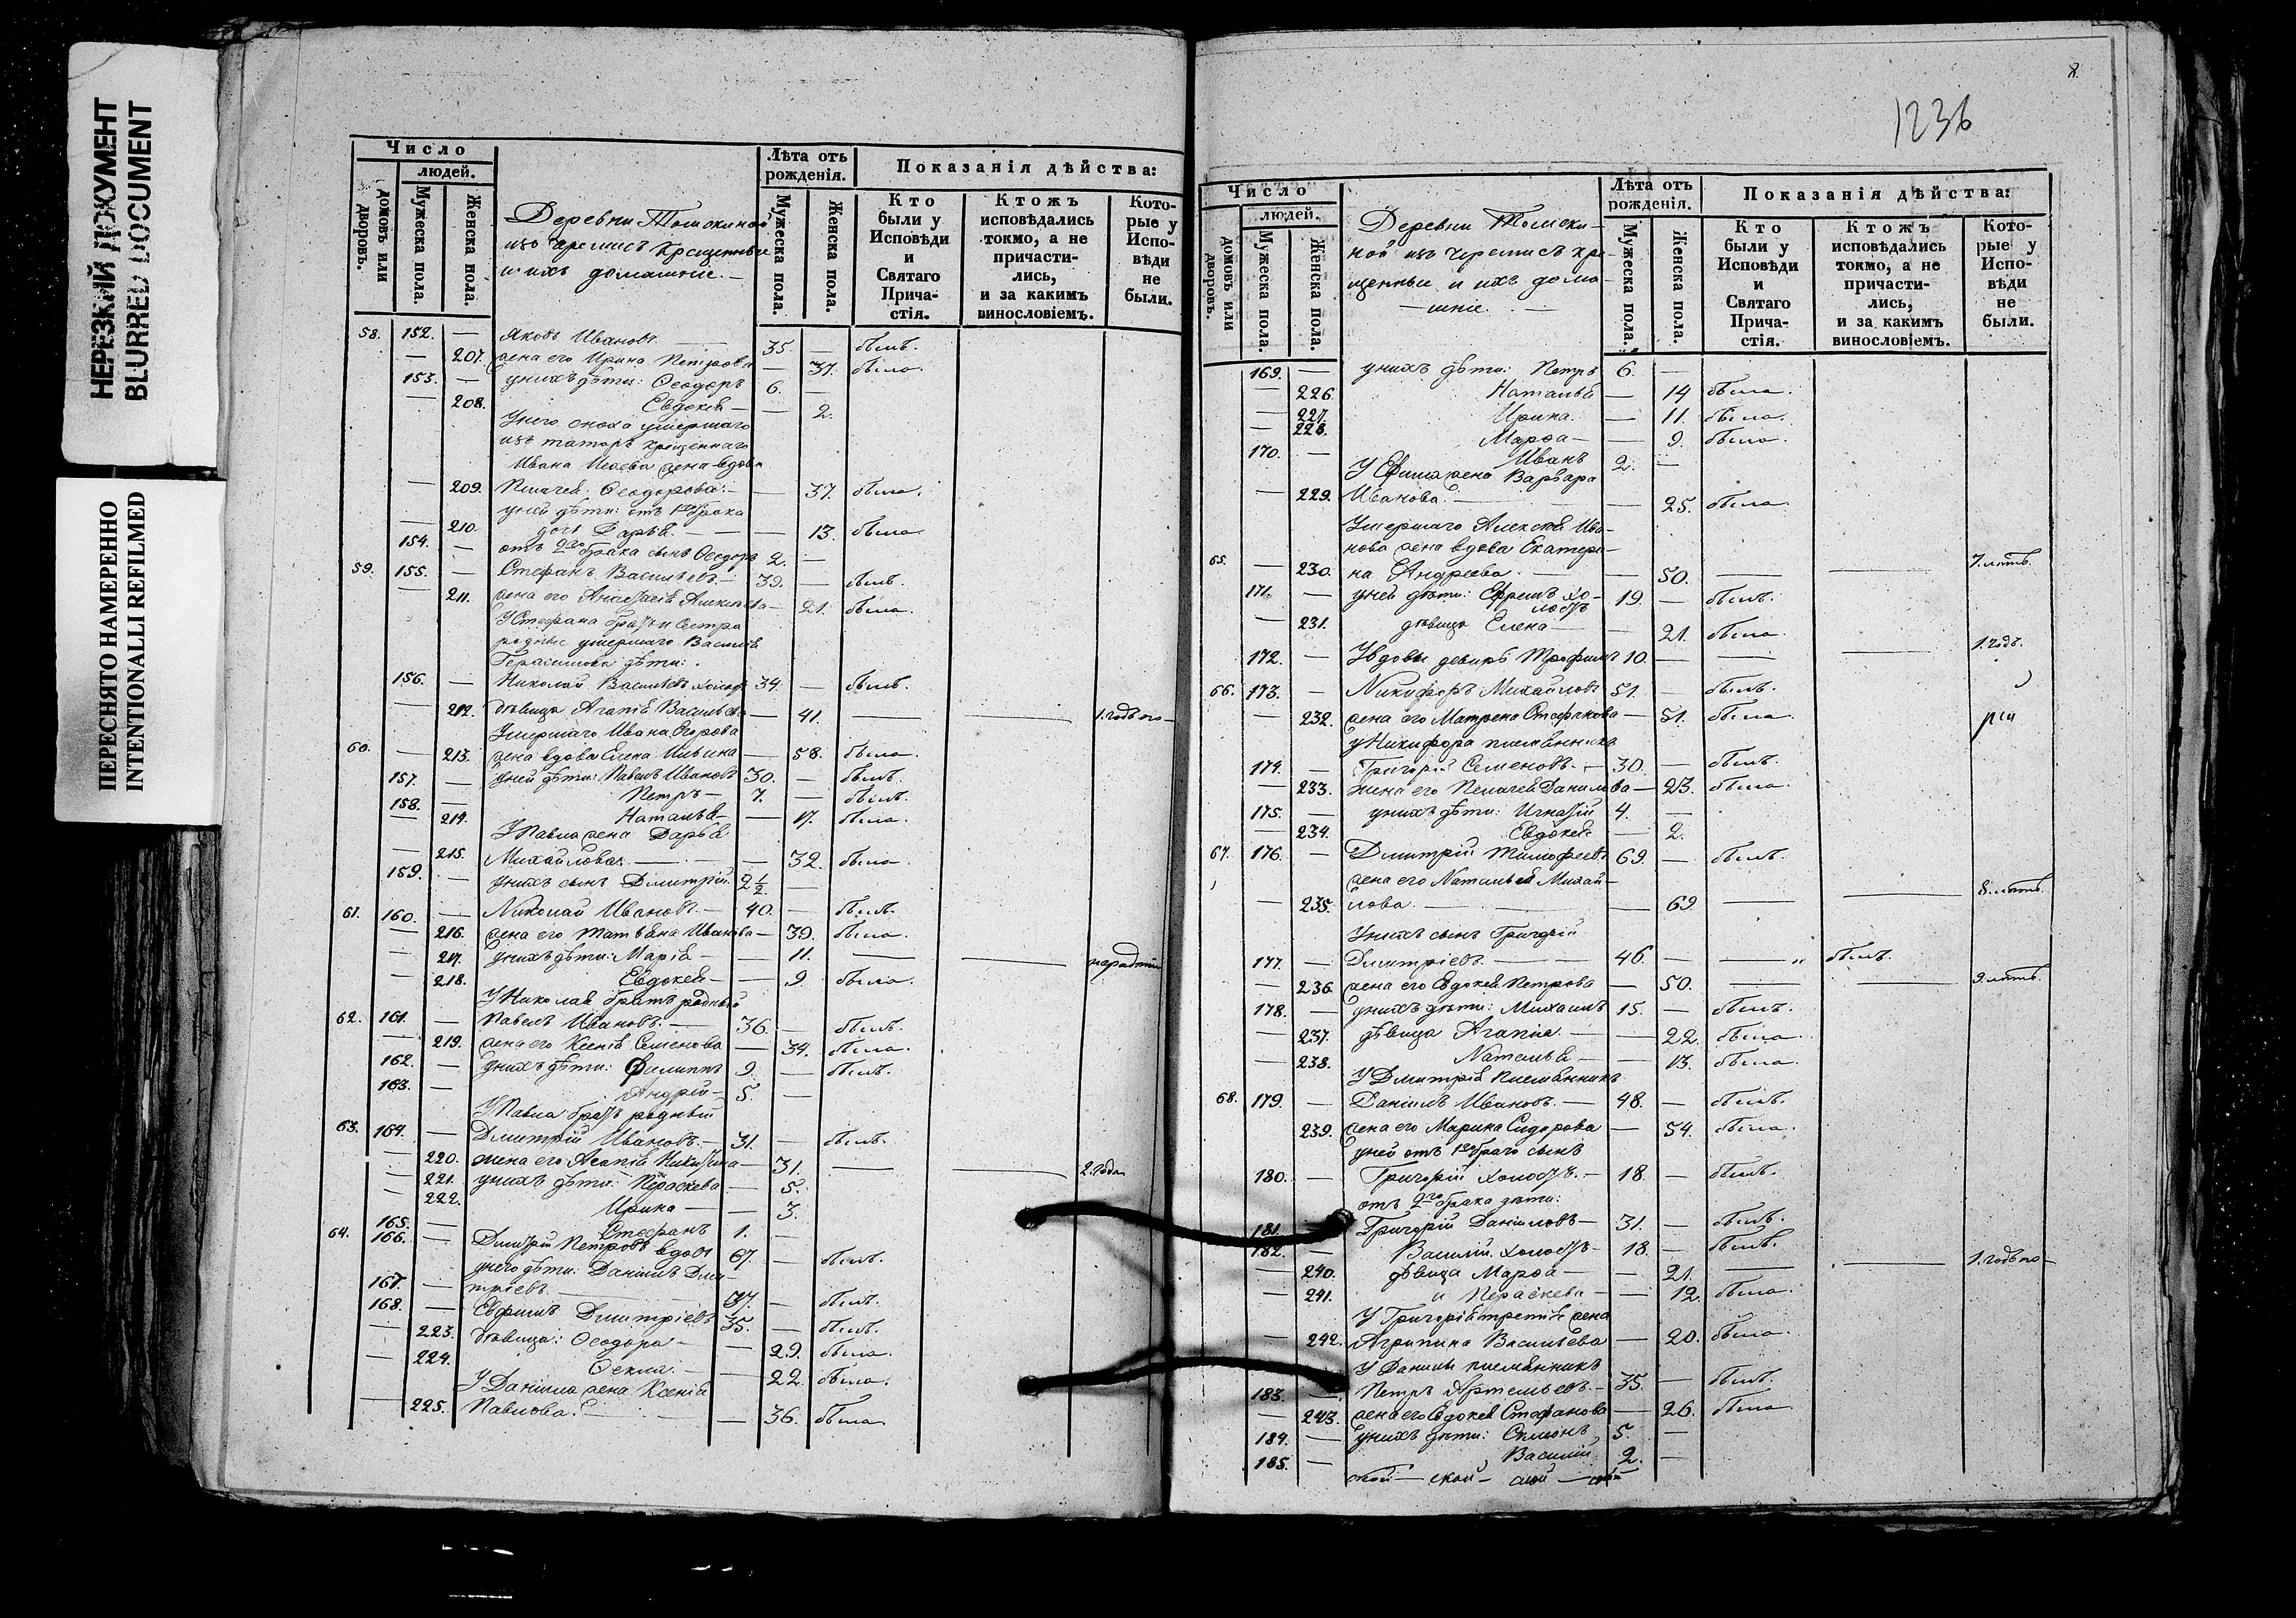 НЕРЕЗКИЙ ДОКУМЕНТ
BLURRED DOCUMENT
ПЕРЕСНЯТО НАМЕРЕННО
INTENTIONALLI REFILMED
Число
людей.
домовъ или дворовъ.
Мужеска пола.
Женска пола.
Деревни
изъ черемисъ крещенные
и ихъ домашніе.
Лѣта отъ рожденія.
Мужеска пола.
Женска пола.
Показанія дѣйства:
Кто были у Исповѣди и Святаго Причастія.
Ктожъ исповѣдались токмо, а не причастились, и за какимъ винословіемъ.
Которые у Исповѣди не были.
58. 152. — Яковъ Ивановъ 35. — былъ.
— 207. жена его Ирина Петрова — 37. была.
153. — у нихъ дѣти: Ѳеодоръ 6. —
— 208. Евдокія — — 2.
У него сноха умершаго
изъ татаръ крещеннаго
Ивана жена вдова
— 209. Пелагея Ѳеодорова — 37. была.
у ней дѣти: отъ 1го брака
— 210. дочь Дарья — — 13. была.
154. — отъ 2го брака сынъ Ѳеодоръ 2. —
59. 155. — Стефанъ Васильевъ — 39. — былъ.
— 211. жена его Анастасія — 21. была.
У Стефана братъ и сестра
родные умершаго Василія
Герасимова дѣти:
156. — Николай Васильевъ холостъ 34. — былъ.
— 212. дѣвица Агапія Васильева — 41. — — 1. годъ по-
Умершаго Ивана Егорова
60. — 213. жена вдова Елена Ильина — 58. была.
157. — у ней дѣти: Павелъ Ивановъ 30. — былъ.
158. — Петръ — 7. — былъ.
— 214. Наталья — — 17. была.
У Павла жена Дарья
— 215. Михайлова — — 32. была.
159. — у нихъ сынъ Дмитрій 2 1/2. —
61. 160. — Николай Ивановъ — 40. — былъ.
— 216. жена его Татьяна Иванова — 39. была.
— 217. у нихъ дѣти: Марія — — 11. — —
— 218. Евдокія — — 9 была.
У Николая братъ родный
62. 161. — Павелъ Ивановъ — 36. — былъ.
— 219. жена его Ксенія Семенова — 34. была.
162. — у нихъ дѣти: Филиппъ 9. — былъ.
163. — Андрей — 5. —
У Павла братъ родный
63. 164. — Дмитрій Ивановъ — 31. — былъ.
— 220. жена его Агапія Никитина — 31. — — 2. года
— 221. у нихъ дѣти: Параскева — 5.
— 222. Ирина — — 3.
165. — Стефанъ 1. —
64. 166. — Дмитрій Петровъ вдовъ 67. — былъ.
у него дѣти: Даніилъ Дми-
167. — тріевъ. 37. — былъ.
168. — Евфимъ Дмитріевъ 35. — былъ.
— 223. дѣвица: Ѳеодора — — 29. была.
— 224. Ѳекла. — — 22. была.
У Даніила жена Ксенія
— 225. Павлова. — — 36. была
8.
1236
Число
людей.
домовъ или дворовъ.
Мужеска пола.
Женска пола.
Деревни
ной изъ черемисъ кре-
щенные и ихъ дома-
— шніе. —
Лѣта отъ рожденія.
Мужеска пола.
Женска пола.
Показанія дѣйства:
Кто были у Исповѣди и Святаго Причастія.
Ктожъ исповѣдались токмо, а не причастились, и за какимъ винословіемъ.
Которые у Исповѣди не были.
169. — у нихъ дѣти: Петръ 6. —
— 226. Наталья — 14 была.
— 227. Ирина. — 11. была.
— 228. Марѳа — — 9. была.
170. — Иванъ 2. —
У Ефима жена Варвара
— 229. Иванова. — — 25. была.
Умершаго Алексѣя Ива-
нова жена вдова Екатери-
65. — 230. на Андреева. — — 50. — — 7. лѣтъ.
171. — у ней дѣти: Ефремъ хо-
лостъ 19. — былъ.
— 231. дѣвица Елена — — 21. была.
172. — У вдовы деверь Трофимъ 10. — — — 1. годъ.
66. 173. — Никифоръ Михайловъ 51. — былъ.
— 232. жена его Матрена Стефанова — 51. была.
у Никифора племянникъ
174. — Григорій Семеновъ. — 30. — былъ.
— 233. жена его Пелагея Данилова — 23. была.
175. — у нихъ дѣти: Игнатій 4. —
— 234. Евдокія — 2.
67. 176. — Дмитрій Тимофеевъ 69. — былъ.
жена его Наталья Михай-
— 235. лова — — 69 — — 8. лѣтъ.
У нихъ сынъ Григорій
177. — Дмитріевъ. — 46. — — былъ.
— 236. жена его Евдокія Петрова — 50. — — 3. лѣтъ.
178. — у нихъ дѣти: Михаилъ 15. — былъ.
— 237. дѣвица Агапія. — — 22. была.
— 238. Наталья — — 13. была
У Дмитрія племянникъ
68. 179. — Даніилъ Ивановъ. — 48. — былъ.
239. жена его Марина Сидорова — 54. была.
у ней отъ 1го брака сынъ
180. — Григорій холостъ. — 18. — былъ.
отъ 2го брака дѣти:
181. — Григорій Даніиловъ — 31. — былъ.
182. — Василій холостъ — 18. — былъ.
— 240. дѣвица Марѳа — — 21. — — 1. годъ по —
— 241. и Параскева — — 12. была.
У Григорія третія жена
— 242. Агрипина Васильева — 20. была.
У Данилы племянникъ
183. — Петръ Артемьевъ. — 35. — былъ.
— 243. жена его Евдокія Стефанова — 26. была.
184. — у нихъ дѣти: Симеонъ 5. —
185. — Василій 2. —